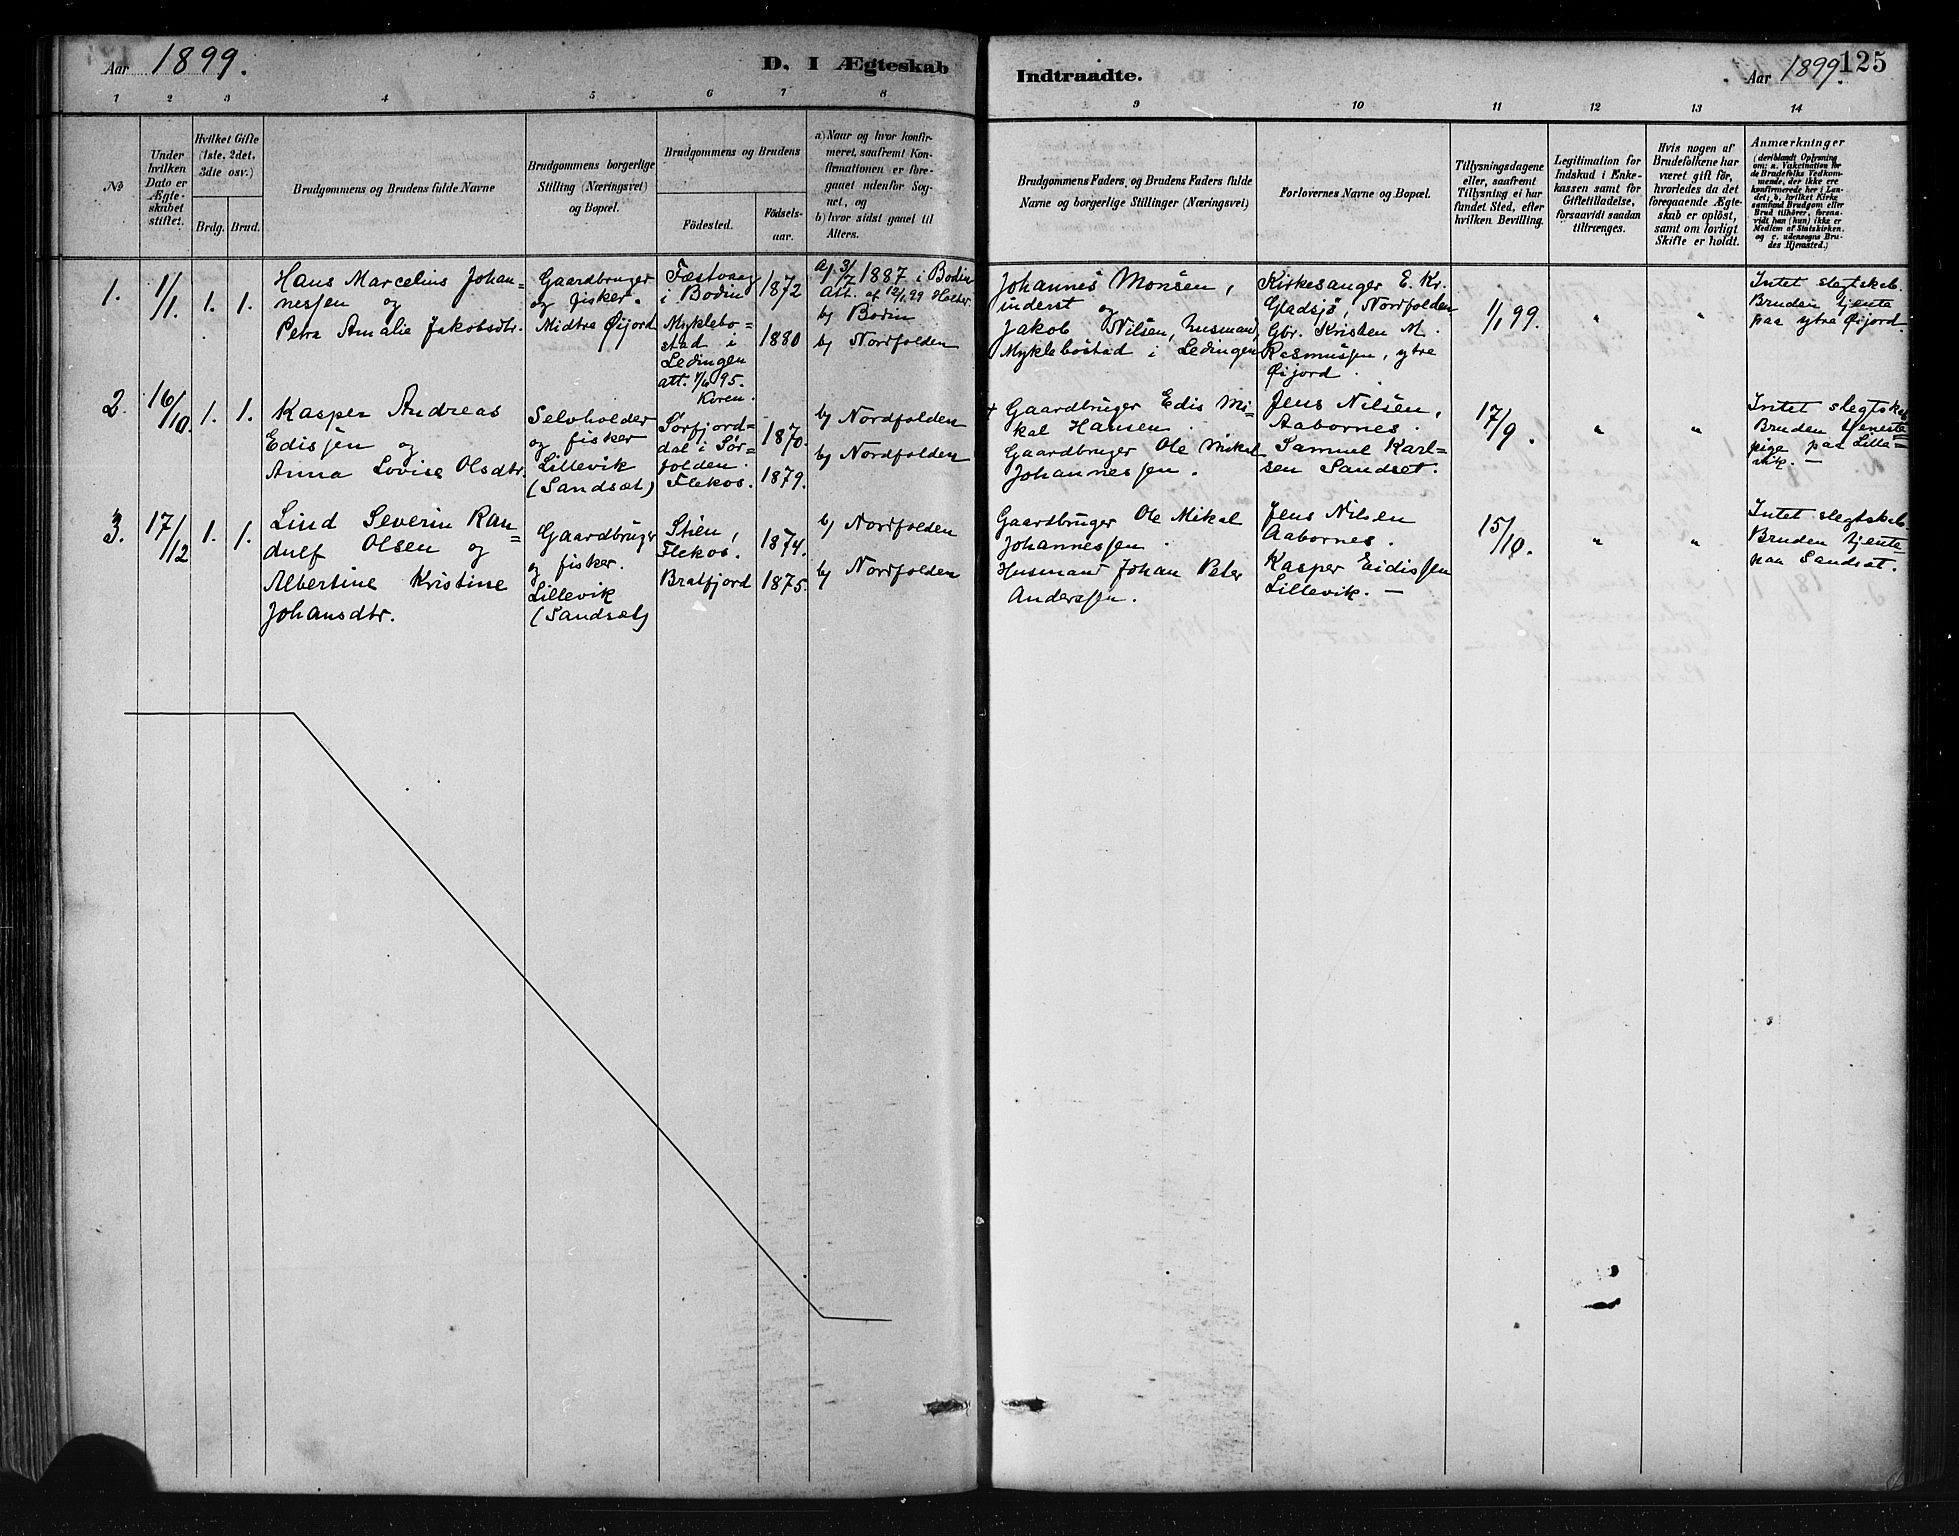 Aar 1899.
D. I Ægteskab
Indtraadte.
Aar 1899.
125
1 2 3 4 5 6 7 8 9 10 11 12 13 14
No
Under
hvilken
Dato er
Ægte-
skabet
stiftet.
Hvilket Gifte
(1ste, 2det,
3die osv.)
Brdg. Brud.
Brudgommens og Brudens fulde Navne
Brudgommens borgerlige
Stilling (Næringsvei)
og Bopæl.
Brudgommens og Brudens
Fødested.
Fødsels-
aar.
a) Naar og hvor konfir-
meret, saafremt Kon-
firmationen er fore-
gaaet udenfor Sog-
net, og
b) hvor sidst gaaet til
Alters.
Brudgommens Faders, og Brudens Faders fulde
Navne og borgerlige Stillinger (Næringsvei)
Forlovernes Navne og Bopæl.
Tillysningsdagene
eller, saafremt
Tillysning ei har
fundet Sted, efter
hvilken Bevilling.
Legitimation for
Indskud i Enke-
kassen samt for
Giftetilladelse,
forsaavidt saadan
tiltrænges.
Hvis nogen af
Brudefolkene har
været gift før,
hvorledes da det
foregaaende Ægte-
skab er opløst,
samt om lovligt
Skifte er holdt.
Anmærkninger
(deriblandt Oplysning
om: a. Vakcination for
de Brudefolks Vedkom-
mende, der ikke ere
konfirmerede her i Lan-
det; b. hvilket Kirke-
samfund Brudgom eller
Brud tilhører, forsaa-
vidt han (hun) ikke er
Medlem af Statskirken,
og c. udensogns Bru-
des Hjemsted.)
1. 1/1. 1. 1.
Hans Marcelius Johan-
nesjen og
Petra Amalie Jakobsdtr.
Gaardbruger
og fisker.
Midtre Øijord
Fæstvaag
i Bodin
Myklebo-
stad i
Lødingen
att. 1/6 95.
1872
1880
a) 3/7 1887 i Bodin
Att. af 12/1 99
b) Bodin
b) Nordfolden
Johannes Monsen,
inderst og
Jakob Nilsen, husmand,
Myklebostad i Lødingen
Kirkesanger E. Kr.
Gladsjø, Nordfolden
Gbr. Kristen M.
Rasmussen, ytre
Øijord.
1/1 99.
"
"
Intet slegtskab.
Bruden tjente
paa ytre Øijord
2. 16/10. 1. 1.
Kasper Andreas
Edisjen og
Anna Lovise Olsdtr.
Selvholder
og fisker
Lillevik
(Sandsæt)
Sørfjord-
dal i Sør-
folden.
Flekos.
1870.
1879.
b) Nordfolden
b) Nordfolden
+ Gaardbruger Edis Mi-
kal Hansen.
Gaardbruger Ole Mikal
Johannesjen.
Jens Nilsen,
Aabornes.
Samuel Karl-
sen Sandset.
17/9.
"
"
Intet slegtskab
Bruden tjeneste-
pige paa Lille-
vik. —
3. 17/12 1. 1.
Lind Severin Ran-
dulf Olsen og
Albertine Kristine
Johansdtr.
Gaardbruger
og fisker.
Lillevik
(Sandsæt)
Stien,
Flekos.
Bratfjord
1874.
1875.
b) Nordfolden
b) Nordfolden
Gaardbruger Ole Mikal
Johannesjen.
Husmand Johan Peter
Andersjen.
Jens Nilsen
Aabornes.
Kasper Eidisjen
Lillevik. —
15/10.
"
"
Intet slegtskab.
Bruden tjente
paa Sandsæt.